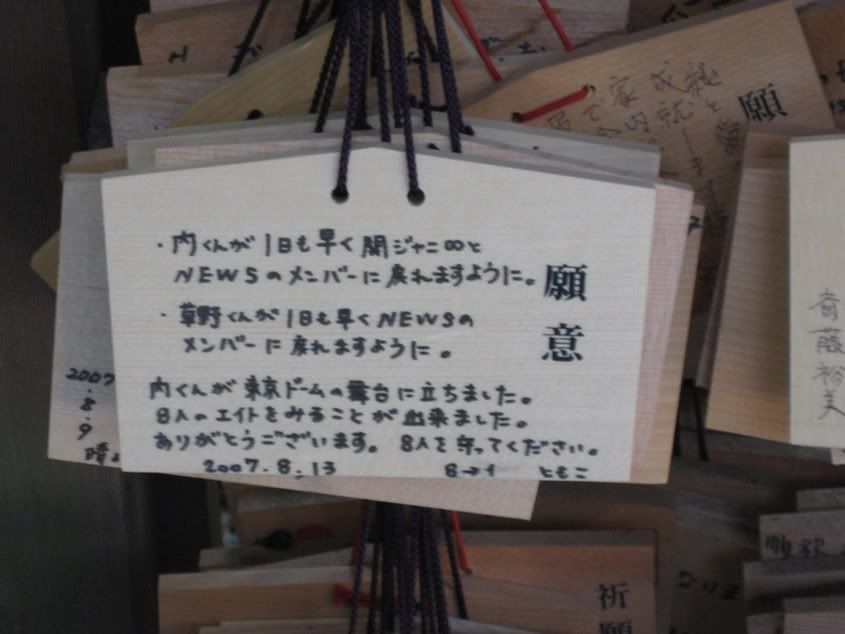 ・内くんが1日も早く関ジャニ∞と
NEWSのメンバーに戻れますように。
・草野くんが1日も早くNEWSの
メンバーに戻れますように。
内くんが東京ドームの舞台に立ちました。
8人のエイトをみることが出来ました。
ありがとうございます。 8人を守ってください。
2007.8.13 8→1 ともこ
願意
願
2007
.8
.9
斎藤裕美
祈願